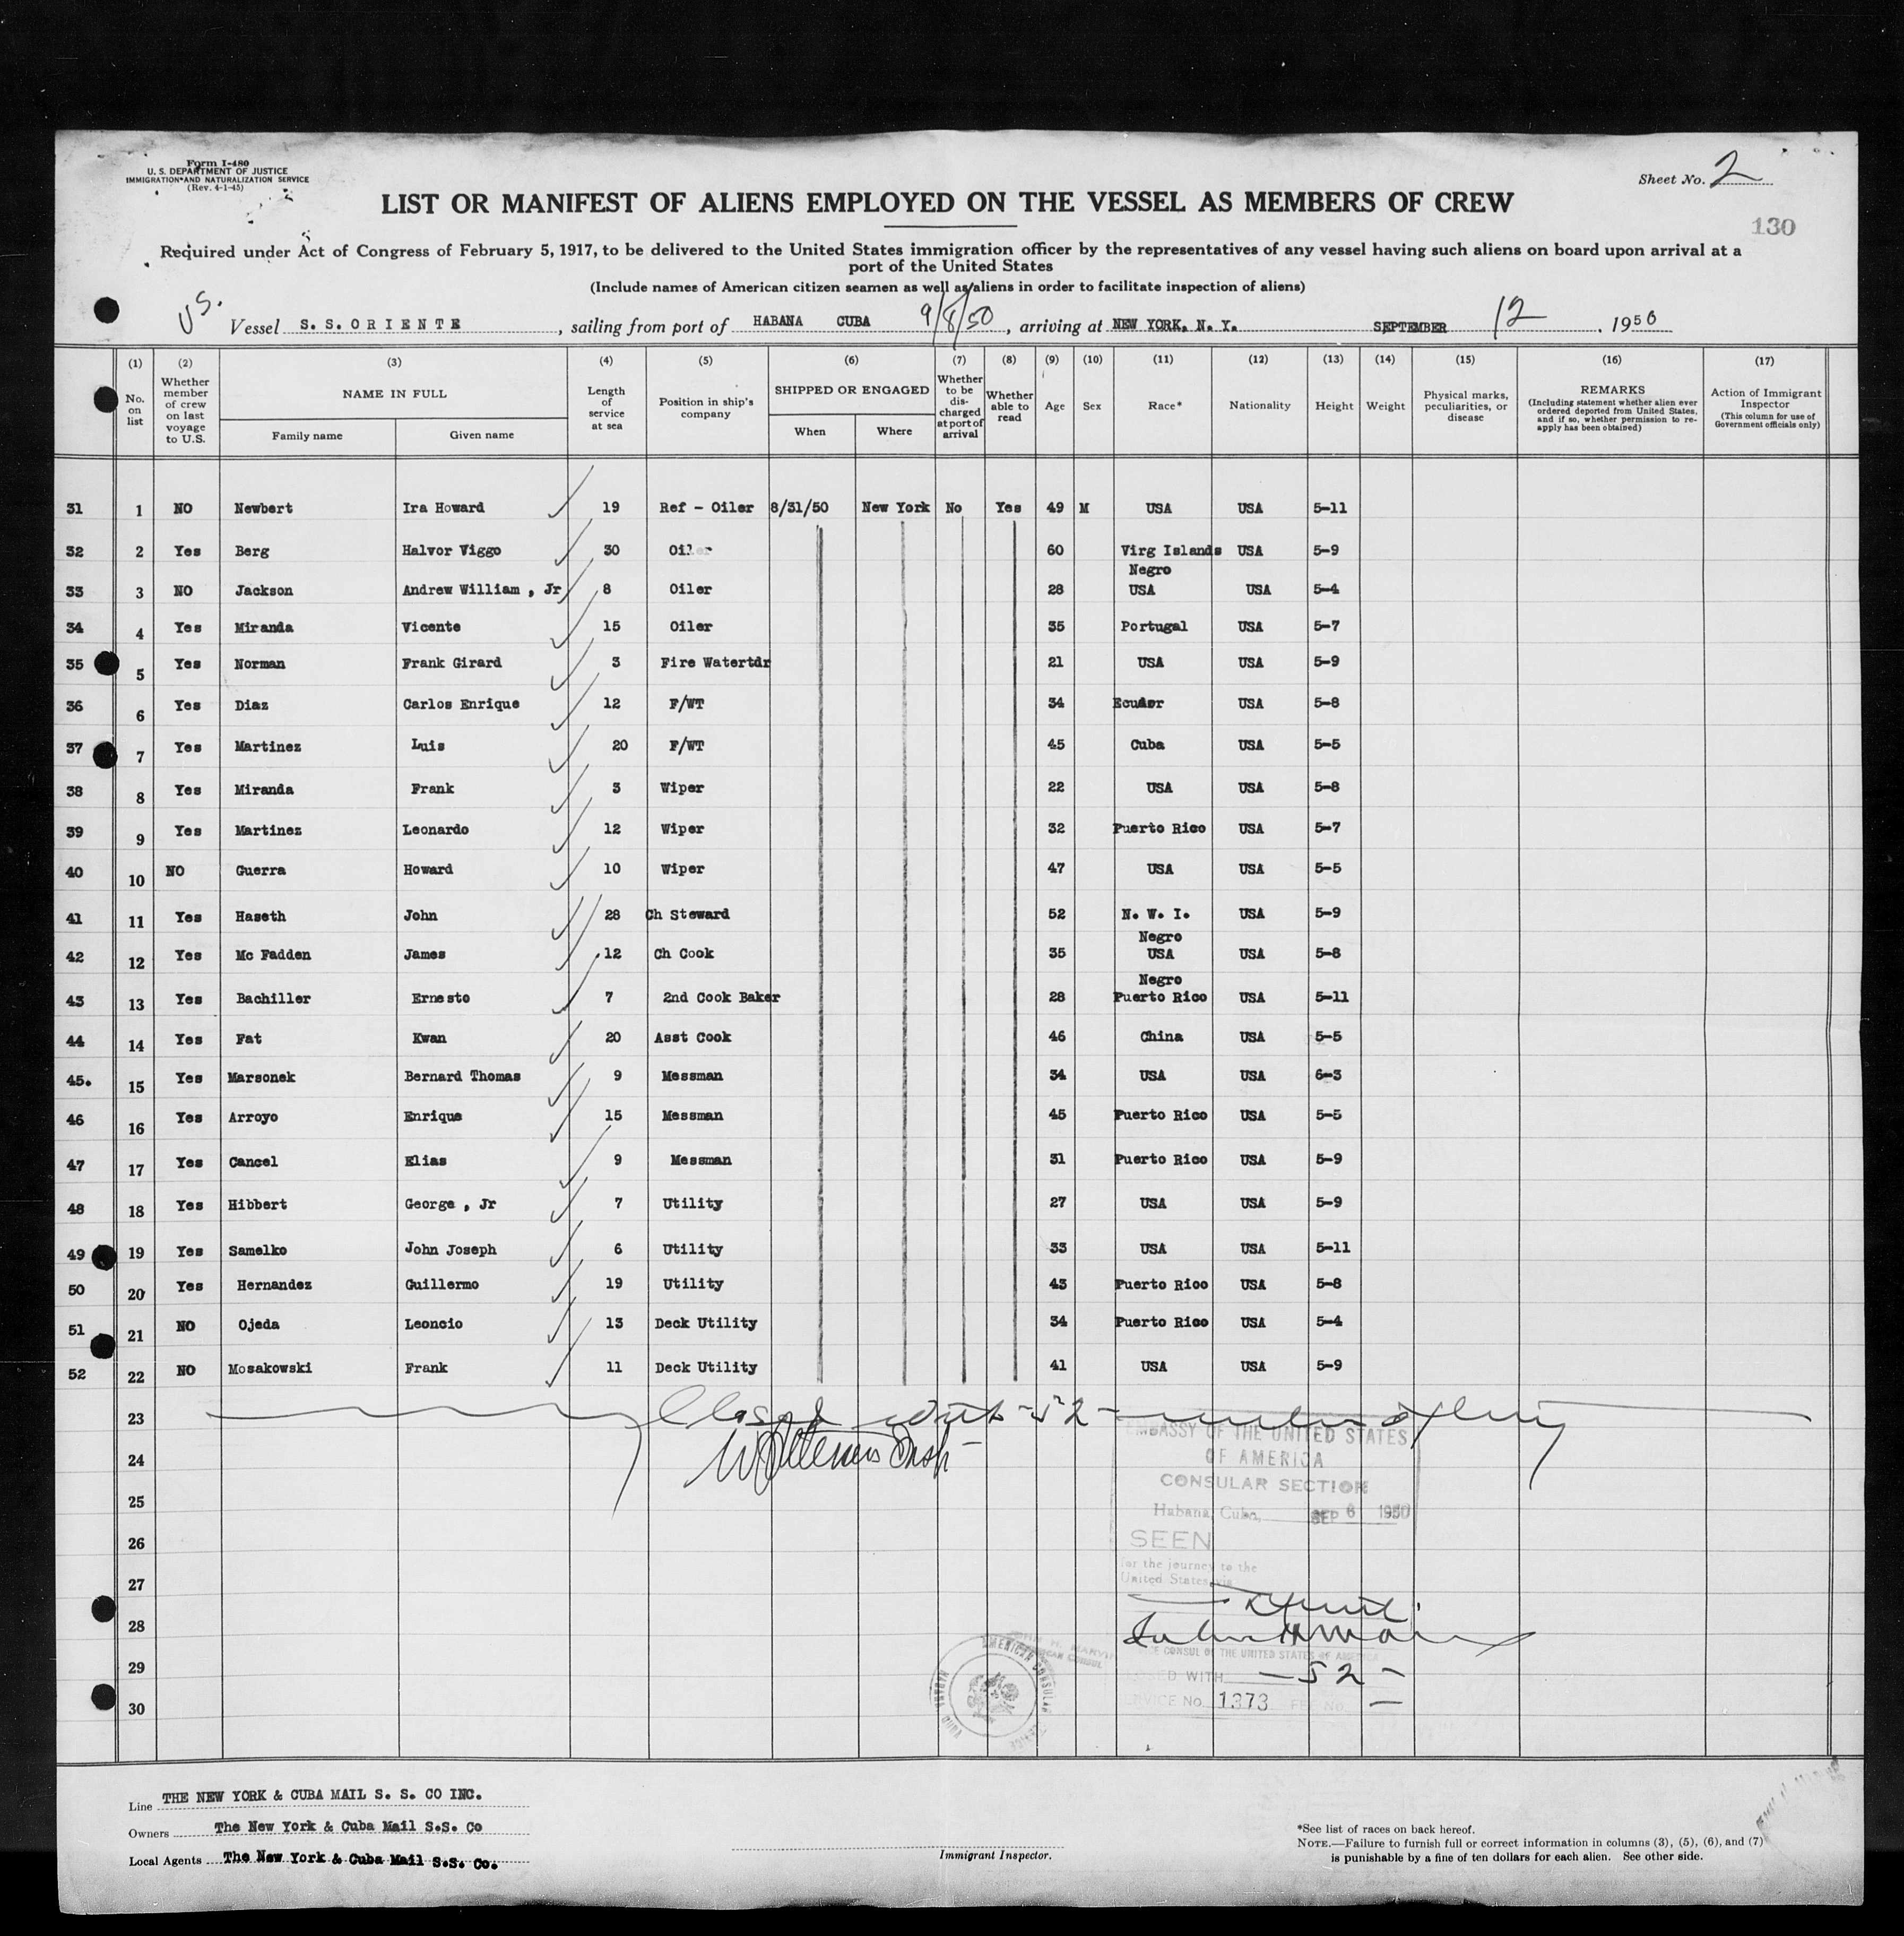 Form I-480
U. S. DEPARTMENT OF JUSTICE
IMMIGRATION AND NATURALIZATION SERVICE
(Rev. 4-1-45)
Sheet No. 2
LIST OR MANIFEST OF ALIENS EMPLOYED ON THE VESSEL AS MEMBERS OF CREW
130
Required under Act of Congress of February 5, 1917, to be delivered to the United States immigration officer by the representatives of any vessel having such aliens on board upon arrival at a
port of the United States
(Include names of American citizen seamen as well as aliens in order to facilitate inspection of aliens)
US. Vessel S. S. ORIENTE, sailing from port of HABANA CUBA 9/8/50, arriving at NEW YORK, N. Y. SEPTEMBER 12, 1950
(1) (2) (3) (4) (5) (6) (7) (8) (9) (10) (11) (12) (13) (14) (15) (16) (17)
No. on list
Whether member of crew on last voyage to U.S.
NAME IN FULL
Family name
Given name
Length of service at sea
Position in ship's company
SHIPPED OR ENGAGED
When
Where
Whether to be discharged at port of arrival
Whether able to read
Age
Sex
Race*
Nationality
Height
Weight
Physical marks, peculiarities, or disease
REMARKS
(Including statement whether alien ever ordered deported from United States, and if so, whether permission to re-apply has been obtained)
Action of Immigrant Inspector
(This column for use of Government officials only)
31 1 NO Newbert Ira Howard 19 Ref - Oiler 8/31/50 New York No Yes 49 M USA USA 5-11
32 2 Yes Berg Halvor Viggo 30 Oiler 60 Virg Islands USA 5-9
Negro
33 3 NO Jackson Andrew William , Jr 8 Oiler 28 USA USA 5-4
34 4 Yes Miranda Vicente 15 Oiler 35 Portugal USA 5-7
35 5 Yes Norman Frank Girard 3 Fire Watertdr 21 USA USA 5-9
36 6 Yes Diaz Carlos Enrique 12 F/WT 34 Ecudor USA 5-8
37 7 Yes Martinez Luis 20 F/WT 45 Cuba USA 5-5
38 8 Yes Miranda Frank 3 Wiper 22 USA USA 5-8
39 9 Yes Martinez Leonardo 12 Wiper 32 Puerto Rico USA 5-7
40 10 NO Guerra Howard 10 Wiper 47 USA USA 5-5
41 11 Yes Haseth John 28 Ch Steward 52 N. W. I. USA 5-9
Negro
42 12 Yes Mc Fadden James 12 Ch Cook 35 USA USA 5-8
Negro
43 13 Yes Bachiller Ernesto 7 2nd Cook Baker 28 Puerto Rico USA 5-11
44 14 Yes Fat Kwan 20 Asst Cook 46 China USA 5-5
45. 15 Yes Marsonek Bernard Thomas 9 Messman 34 USA USA 6-3
46 16 Yes Arroyo Enrique 15 Messman 45 Puerto Rico USA 5-5
47 17 Yes Cancel Elias 9 Messman 31 Puerto Rico USA 5-9
48 18 Yes Hibbert George , Jr 7 Utility 27 USA USA 5-9
49 19 Yes Samelko John Joseph 6 Utility 33 USA USA 5-11
50 20 Yes Hernandez Guillermo 19 Utility 43 Puerto Rico USA 5-8
51 21 NO Ojeda Leoncio 13 Deck Utility 34 Puerto Rico USA 5-4
52 22 NO Mosakowski Frank 11 Deck Utility 41 USA USA 5-9
23 Closed with -52- members of crew
24
25
26
27
28
29
30
EMBASSY OF THE UNITED STATES
OF AMERICA
CONSULAR SECTION
Habana, Cuba, SEP 8 1950
SEEN
for the journey to the
United States via
VICE CONSUL OF THE UNITED STATES OF AMERICA
CLOSED WITH -52-
SERVICE No. 1373 FEE No. -
AMERICAN CONSULAR SERVICE
HABANA CUBA
Line THE NEW YORK & CUBA MAIL S. S. CO INC.
Owners The New York & Cuba Mail S.S. Co
Local Agents The New York & Cuba Mail S.S. Co.
Immigrant Inspector.
*See list of races on back hereof.
NOTE.—Failure to furnish full or correct information in columns (3), (5), (6), and (7)
is punishable by a fine of ten dollars for each alien. See other side.